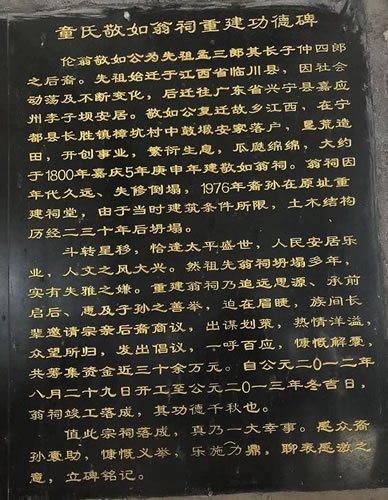 童氏敬如翁祠重建功德碑
伦翁敬如公为先祖孟三郎其长子仲四郎
之后裔。先祖始迁于江西省临川县，因社会
动荡及不断变化，后迁往广东省兴宁县嘉应
州李子坝安居。敬如公复迁故乡江西，在宁
都县长胜镇樟坑村中鼓塅安家落户，垦荒造
田，开创事业，繁衍生息，瓜庭绵绵，大约
于1800年嘉庆5年庚申年建敬如翁祠。翁祠因
年代久远、失修倒塌，1976年裔孙在原址重
建祠堂，由于当时建筑条件所限，土木结构
历经二三十年后坍塌。
斗转星移，恰逢太平盛世，人民安居乐
业，人文之风大兴。然祖先翁祠坍塌多年，
实有失雅之嫌。重建翁祠乃追远思源、承前
启后、惠及子孙之善举，迫在眉睫，族间长
辈邀请宗亲后裔商议，出谋划策，热情洋溢，
众望所归，发出倡议，一呼百应，慷慨解囊，
共筹集资金近三十余万元。自公元二〇一二年
八月二十九日开工至公元二〇一三年冬吉日，
翁祠竣工落成，其功德千秋也。
值此宗祠落成，真乃一大幸事。愿众裔
孙囊助，慷慨义举，乐施力鼎，聊表感激之
意，立碑铭记。